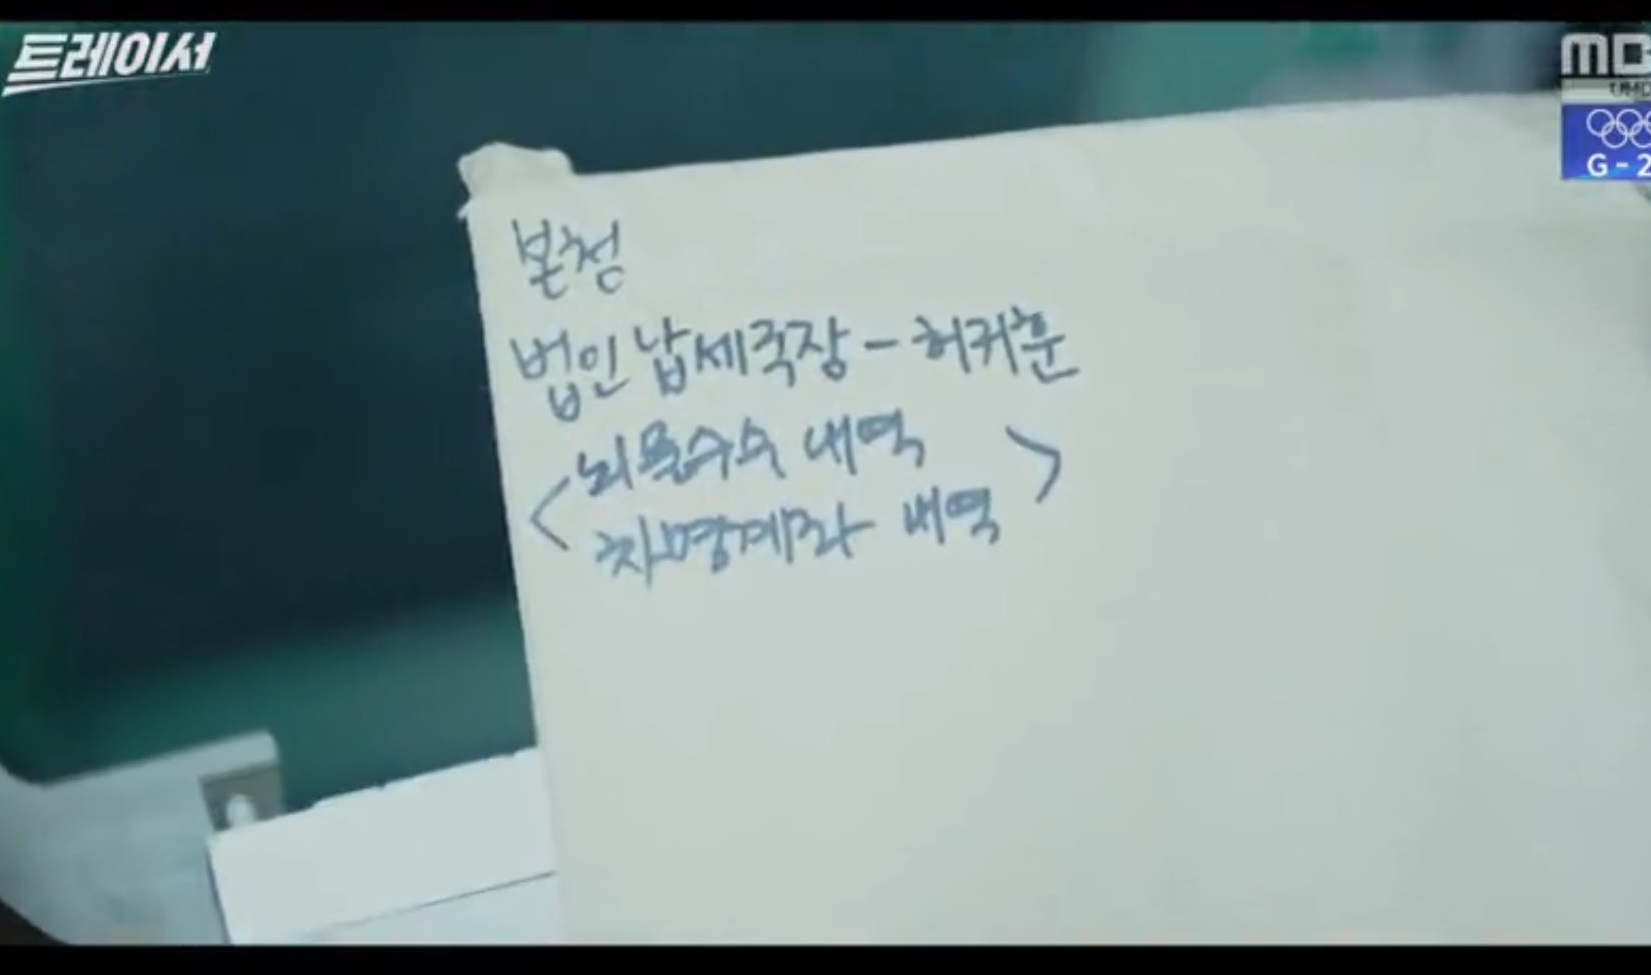 트레이서
본청
법인납세국장-허귀훈
<뇌물수수 내역
차명계좌 내역>
G-2